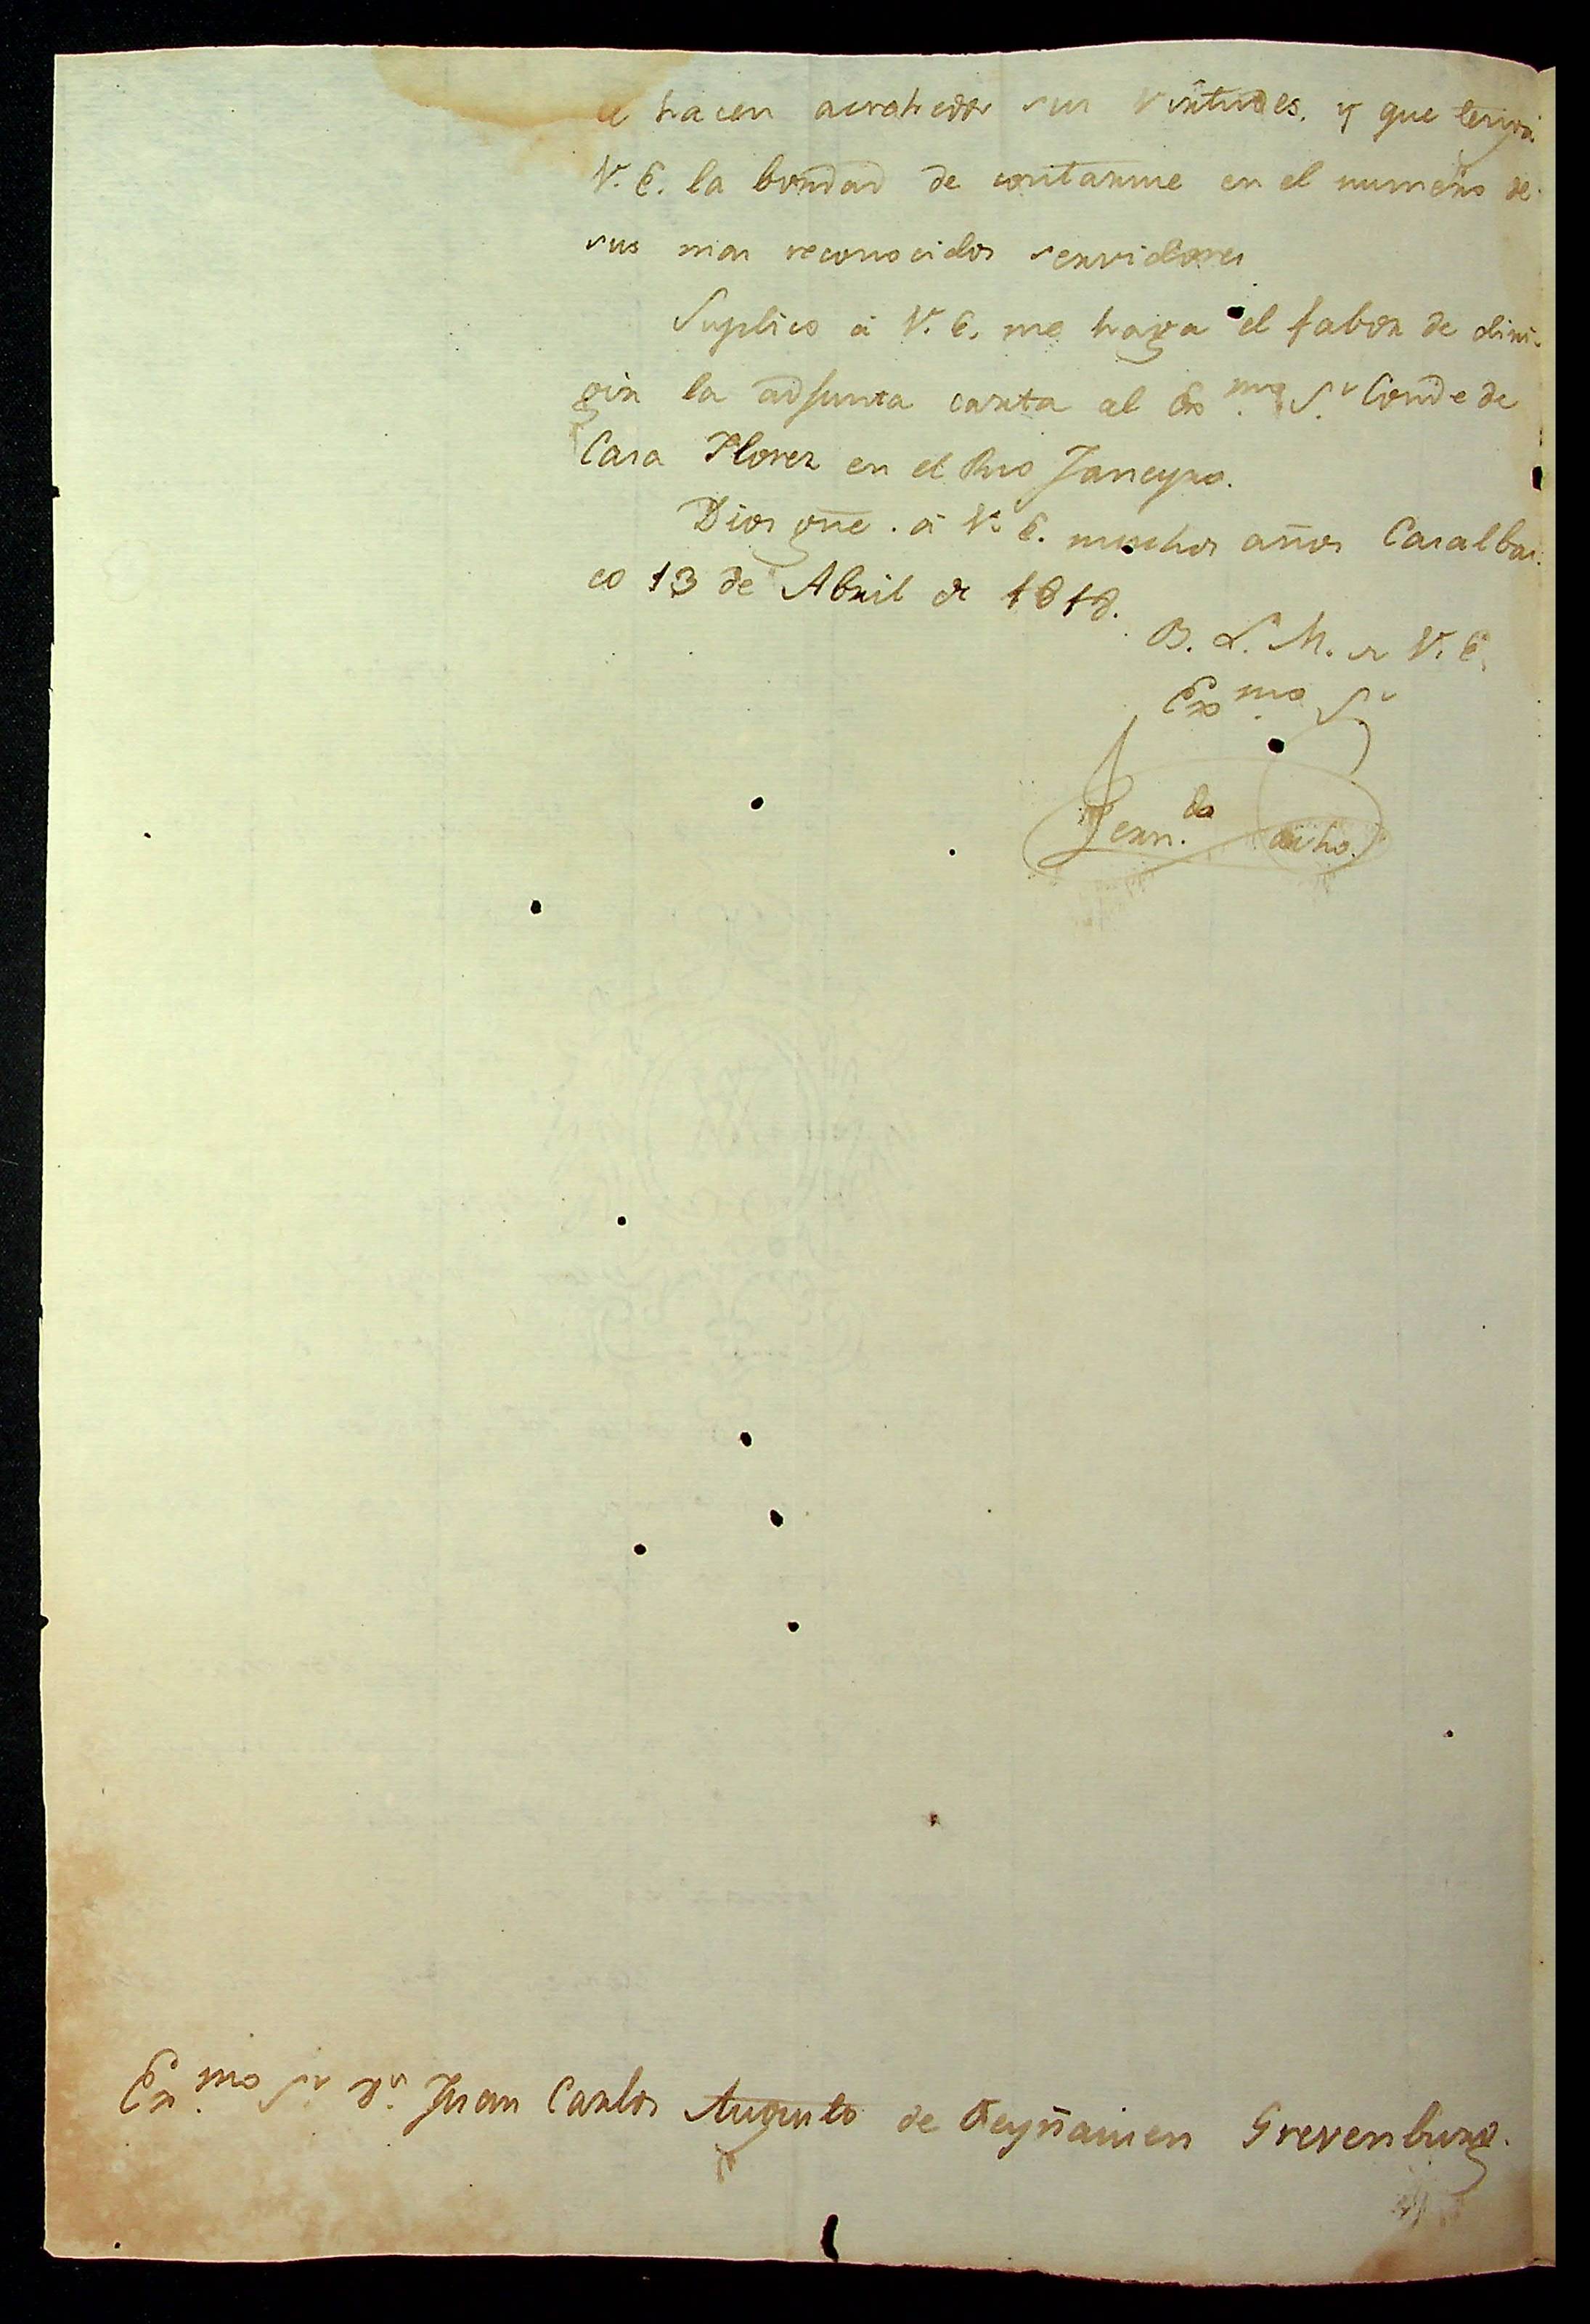 le hacen acrehedor sus Virtudes. y que tendrá
V. E. la bondad de contarme en el numero de
sus mas reconocidos servidores
Suplico á V. E. me haga el fabor de diri-
gir la adjunta carta al Exmo. Sr. Conde de
Casa Florez en el Rio Janeyro.
Dios gue. á V. E. muchos años Casalbas-
co 13 de Abril de 1818.
B. L. M. de V. E.
Exmo. Sr.
Fern.do
Exmo. Sr. Dn. Juan Carlos Augusto de Oeyñausen Grevenburg.